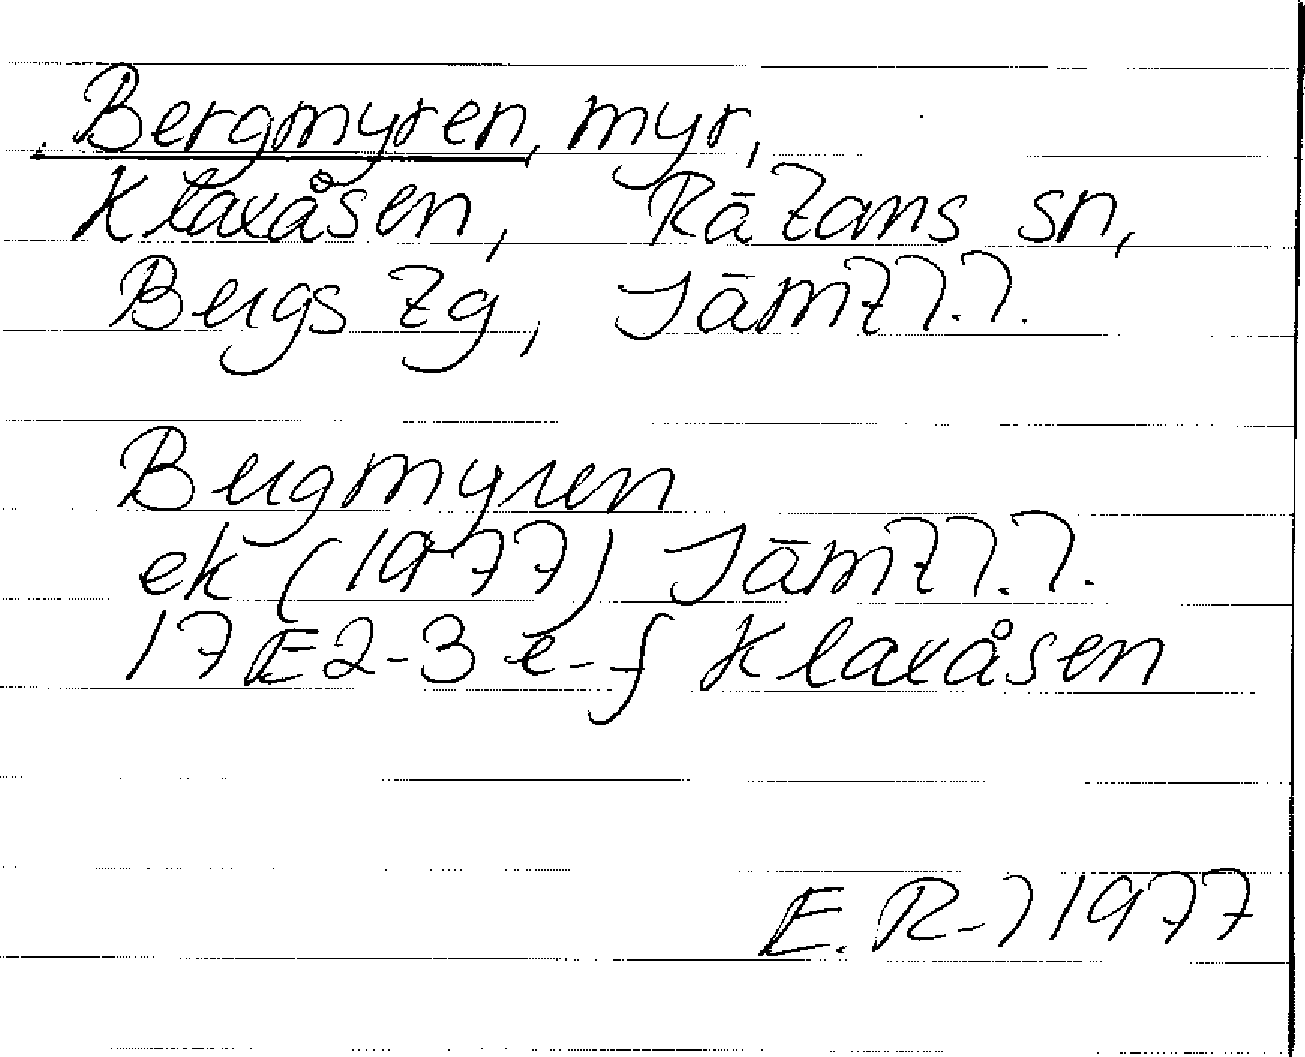 Bergmyren, myr,
Klaxåsen, Rätans sn,
Bergs tg, Jämtl.l.
Bergmyren
ek (1977) Jämtl.l.
17E2-3 e-f Klaxåsen
E.R-l 1977